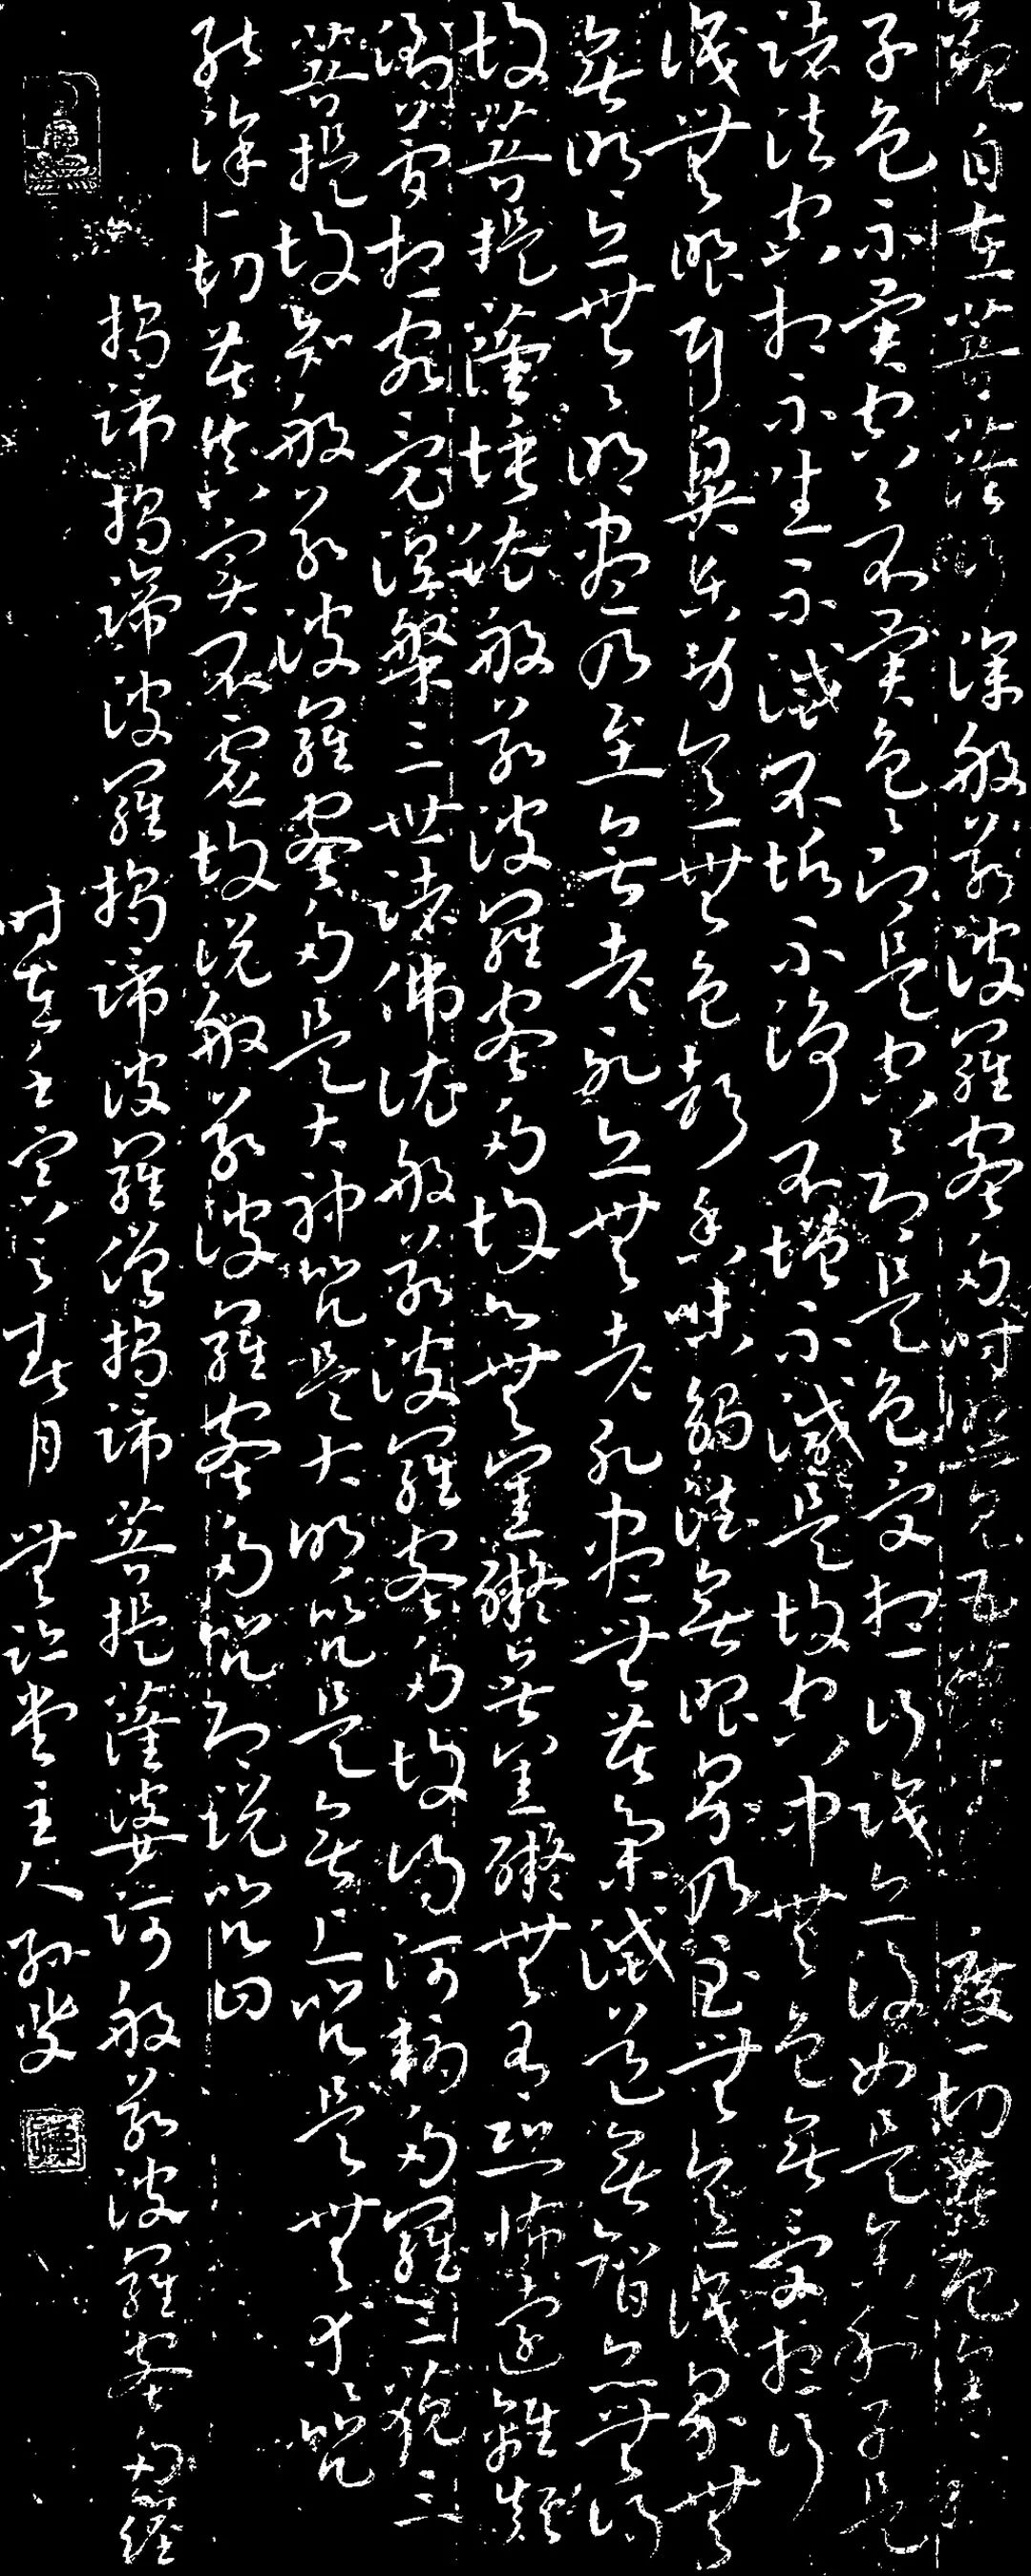 觀自在菩薩行深般若波羅蜜多時照見五蘊皆空度一切苦厄舍利
子色不異空空不異色色即是空空即是色受想行識亦復如是舍利子是
諸法空相不生不滅不垢不淨不增不減是故空中無色無受想行
識無眼耳鼻舌身意無色聲香味觸法無眼界乃至無意識界無
無明亦無無明盡乃至無老死亦無老死盡無苦集滅道無智亦無得
故菩提薩埵依般若波羅蜜多故心無罣礙無罣礙故無有恐怖遠離顛
倒夢想究竟涅槃三世諸佛依般若波羅蜜多故得阿耨多羅三藐三
菩提故知般若波羅蜜多是大神咒是大明咒是無上咒是無等等咒
能除一切苦真實不虛故說般若波羅蜜多咒即說咒曰
揭諦揭諦波羅揭諦波羅僧揭諦菩提薩婆訶般若波羅蜜多心經
時在壬寅之春月無訟堂主人孫斐